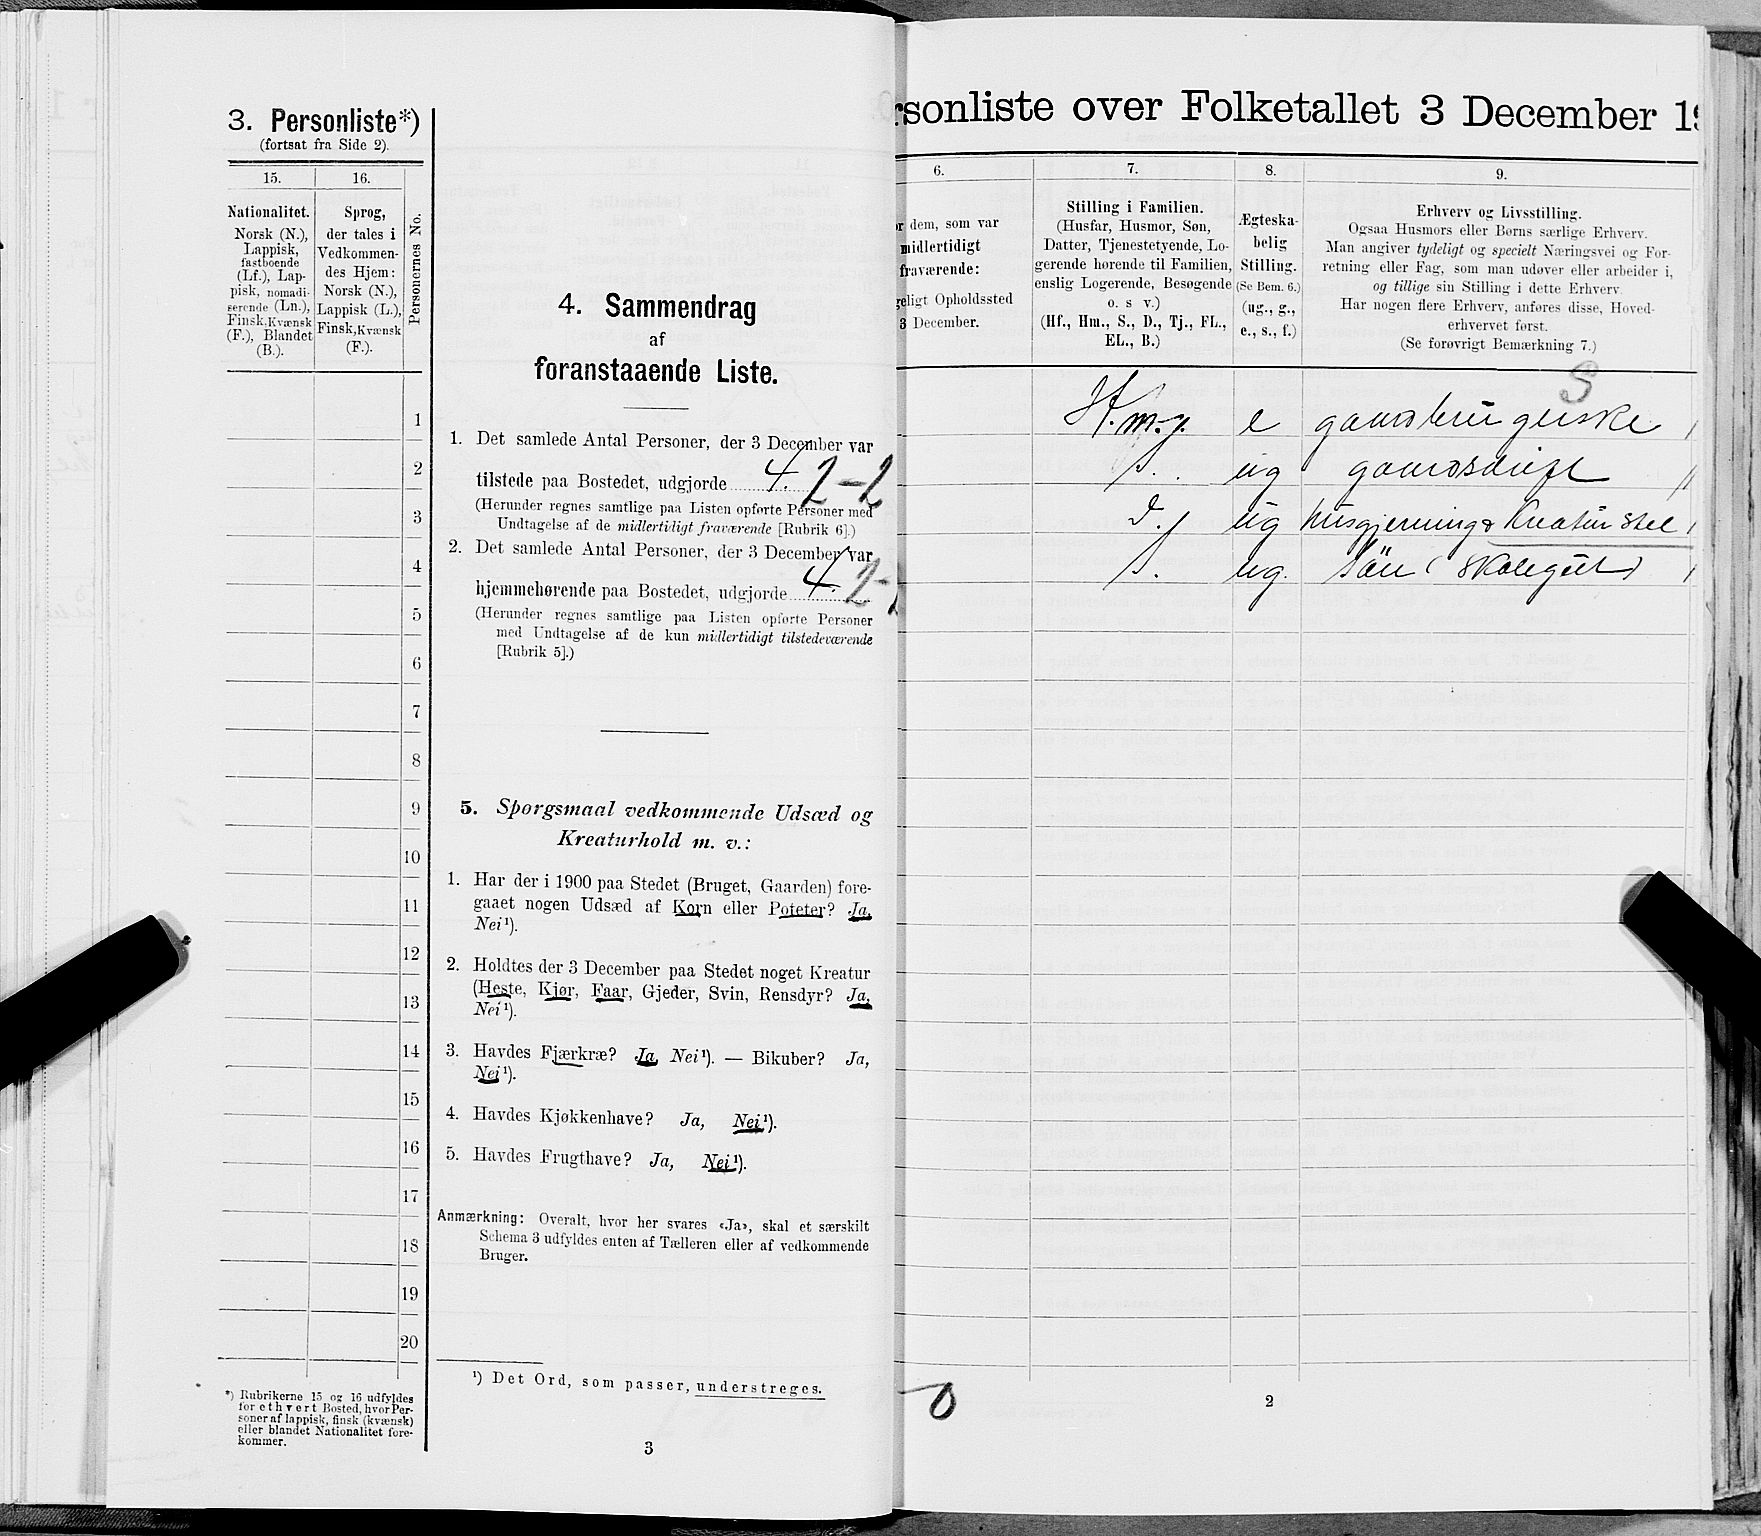 3. Personliste*)
(fortsat fra Side 2).
15.
16.
Nationalitet.
Norsk (N.),
Lappisk,
fastboende
(Lf.), Lap-
pisk, nomadi-
serende (Ln.),
Finsk, Kvænsk
(F.), Blandet
(B.).
Sprog,
der tales i
Vedkommen-
des Hjem:
Norsk (N.),
Lappisk (L.),
Finsk, Kvænsk
(F.).
Personernes No.
1
2
3
4
5
6
7
8
9
10
11
12
13
14
15
16
17
18
19
20
*) Rubrikerne 15 og 16 udfyldes
for ethvert Bosted, hvor Per-
soner af lappisk, finsk (kvænsk)
eller blandet Nationalitet fore-
kommer.
4. Sammendrag
af
foranstaaende Liste.
1. Det samlede Antal Personer, der 3 December var
tilstede paa Bostedet, udgjorde 4. 2-2
(Herunder regnes samtlige paa Listen opførte Personer med
Undtagelse af de midlertidigt fraværende [Rubrik 6].)
2. Det samlede Antal Personer, der 3 December var
hjemmehørende paa Bostedet, udgjorde 4. 2-
(Herunder regnes samtlige paa Listen opførte Personer
med Undtagelse af de kun midlertidigt tilstedeværende
[Rubrik 5].)
5. Spørgsmaal vedkommende Udsæd og
Kreaturhold m. v.:
1. Har der i 1900 paa Stedet (Bruget, Gaarden) fore-
gaaet nogen Udsæd af Korn eller Poteter? Ja,
Nei¹).
2. Holdtes der 3 December paa Stedet noget Kreatur
(Heste, Kjør, Faar, Gjeder, Svin, Rensdyr? Ja,
Nei¹).
3. Havdes Fjærkræ? Ja, Nei¹). — Bikuber? Ja,
Nei¹).
4. Havdes Kjøkkenhave? Ja, Nei¹).
5. Havdes Frugthave? Ja, Nei¹).
Anmærkning: Overalt, hvor her svares «Ja», skal et særskilt
Schema 3 udfyldes enten af Tælleren eller af vedkommende
Bruger.
¹) Det Ord, som passer, understreges.
3
rsonliste over Folketallet 3 December 19
6.
7.
8.
9.
r dem, som var
midlertidigt
fraværende:
geligt Opholdssted
3 December.
Stilling i Familien.
(Husfar, Husmor, Søn,
Datter, Tjenestetyende, Lo-
gerende hørende til Familien,
enslig Logerende, Besøgende
o. s v.)
(Hf., Hm., S., D., Tj., FL.,
EL., B.)
Ægteska-
belig
Stilling.
(Se Bem. 6.)
(ug., g.,
e., s., f.)
Erhverv og Livsstilling.
Ogsaa Husmors eller Børns særlige Erhverv.
Man angiver tydeligt og specielt Næringsvei og For-
retning eller Fag, som man udøver eller arbeider i,
og tillige sin Stilling i dette Erhverv.
Har nogen flere Erhverv, anføres disse, Hoved-
erhvervet først.
(Se forøvrigt Bemærkning 7.)
S
e gaardbrugerske
S. ug gaardsdrift
D. ug husgjerning & Kreaturstel
S. ug. sön (skolegut)
0
2